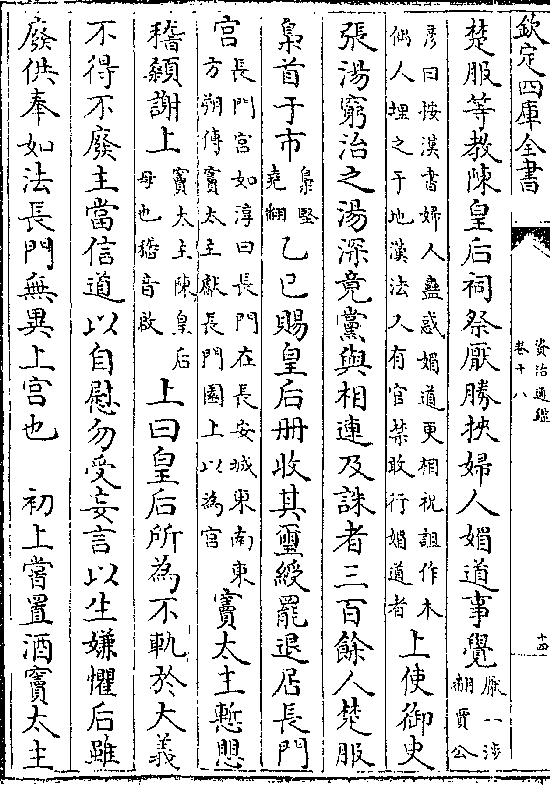 欽定四庫全書
資治通鑑
卷十八
十四
楚服等教陳皇后祠祭厭勝挾婦人媚道事覺厭一涉翻賈公
彥曰按漢書婦人蠱惑媚道更相祝詛作木
偶人埋之于地漢法人有官禁敢行媚道者上使御史
張湯窮治之湯深竟黨與相連及誅者三百餘人楚服
梟首于市梟堅堯翻乙巳賜皇后册收其璽綬罷退居長門
宮長門宮如淳曰長門在長安城東南東
方朔傳竇太主獻長門園上以為宮竇太主慙懼
稽顙謝上竇太主陳皇后母也稽音啟上曰皇后所為不軌於大義
不得不廢主當信道以自慰勿受妄言以生嫌懼后雖
廢供奉如法長門無異上宮也 初上嘗置酒竇太主